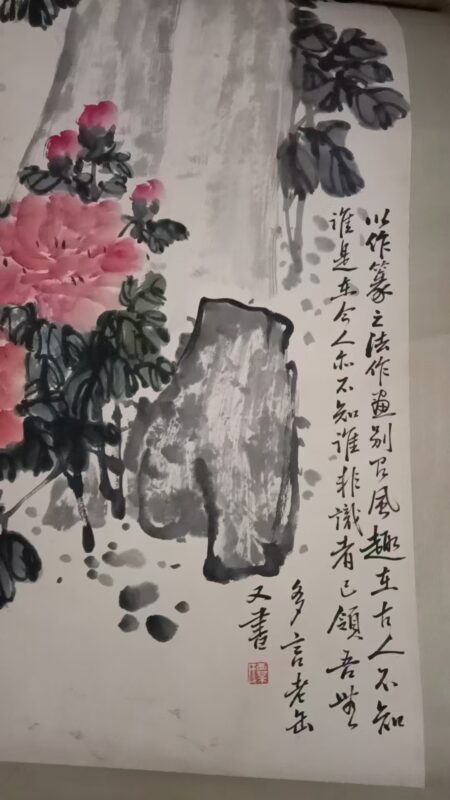 以作篆之法作畫别有風趣在古人不知
誰是在今人亦不知誰非識者已領吾無
多言老缶
又書